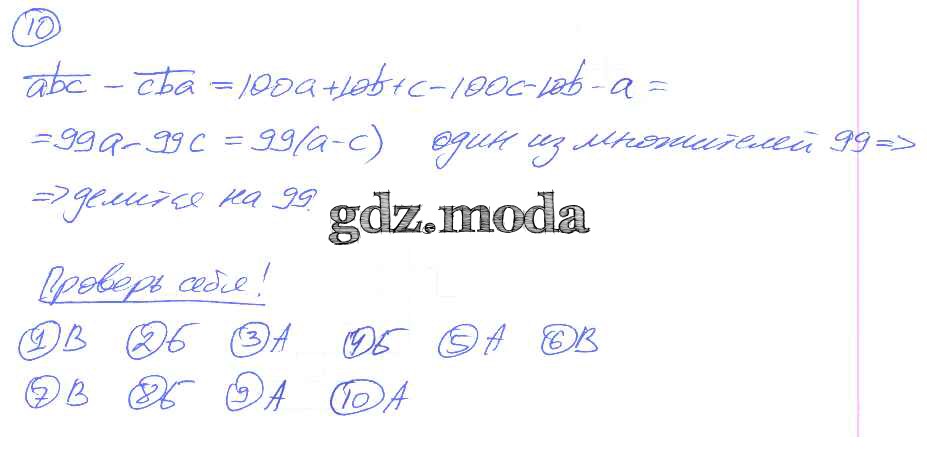 10
abc - cba = 100a + 10b + c - 100c - 10b - a =
= 99a - 99c = 99(a - c) один из множителей 99 =>
=> делится на 99.
gdz.moda
Проверь себя!
1 В 2 Б 3 А 4 Б 5 А 6 В
7 В 8 Б 9 А 10 А